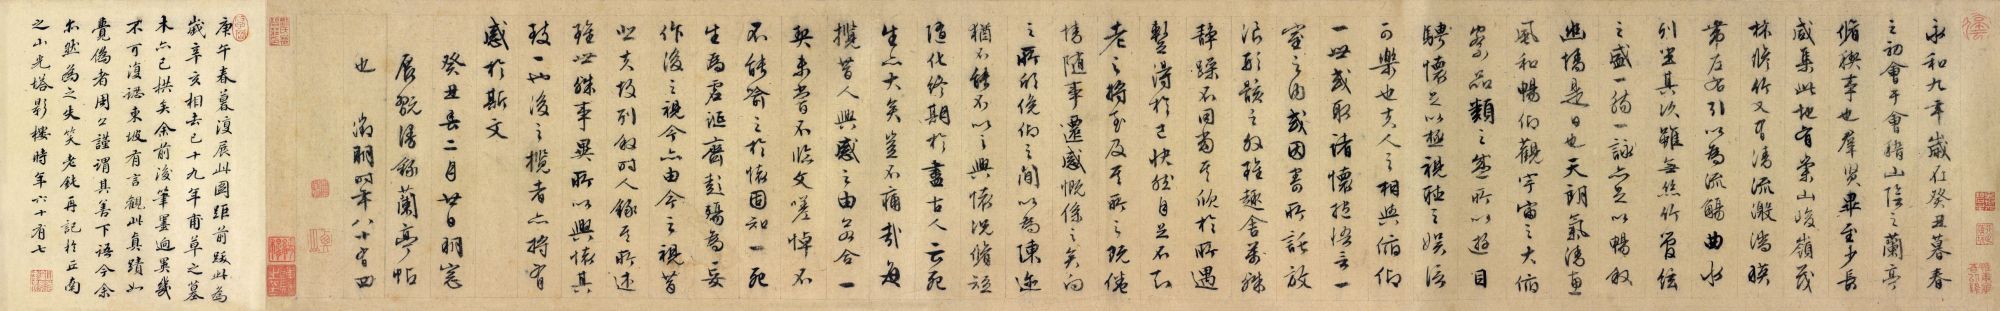 永和九年歲在癸丑暮春
之初會于會稽山陰之蘭亭
脩禊事也羣賢畢至少長
咸集此地有崇山峻嶺茂
林脩竹又有清流激湍暎
帶左右引以為流觴曲水
列坐其次雖無絲竹管絃
之盛一觴一詠亦足以暢敘
幽情是日也天朗氣清惠
風和暢仰觀宇宙之大俯
察品類之盛所以遊目
騁懷足以極視聽之娛信
可樂也夫人之相與俯仰
一世或取諸懷抱悟言一
室之內或因寄所託放
浪形骸之外雖趣舍萬殊
靜躁不同當其欣於所遇
暫得於己快然自足不知
老之將至及其所之既倦
情隨事遷感慨係之矣向
之所欣俛仰之間以為陳迹
猶不能不以之興懷況脩短
隨化終期於盡古人云死
生亦大矣豈不痛哉每
攬昔人興感之由若合一
契未嘗不臨文嗟悼不
不能喻之於懷固知一死
生為虛誕齊彭殤為妄
作後之視今亦由今之視昔
悲夫故列敘時人錄其所述
雖世殊事異所以興懷其
致一也後之攬者亦將有
感於斯文
癸丑二月廿日明窗
展翫漫錄蘭亭帖
也 徵明時年八十有四
庚午春暮復展此圖距前跋此為
歲辛亥相去已十九年甫草之墓
木亦已拱矣余前後筆墨迥異幾
不可復識東坡有言觀此真蹟如
覺偽者周公謹謂其善下語今余
亦然為之失笑老鈍再記於丘南
之山光塔影樓時年六十有七